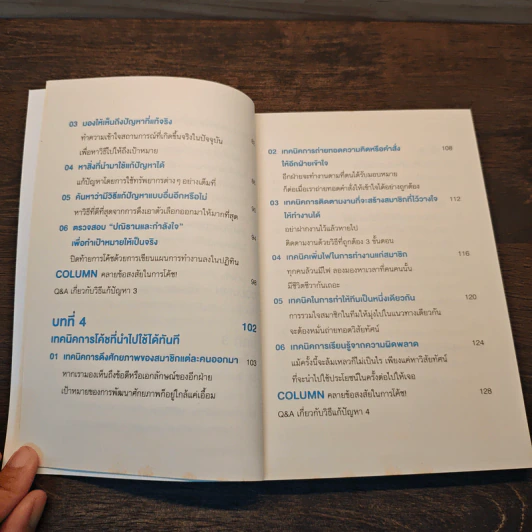 03 มองให้เห็นถึงปัญหาที่แท้จริง
ทำความเข้าใจสถานการณ์ที่เกิดขึ้นจริงในปัจจุบัน
เพื่อหาวิธีไปให้ถึงเป้าหมาย
04 หาสิ่งที่นำมาใช้แก้ปัญหาได้
แก้ปัญหาโดยการใช้ทรัพยากรต่างๆ อย่างเต็มที่
05 ค้นหาว่ามีวิธีแก้ปัญหาแบบอื่นอีกหรือไม่
หาวิธีที่ดีที่สุดจากการดึงเอาตัวเลือกออกมาให้มากที่สุด
06 ตรวจสอบ "ปณิธานและกำลังใจ"
เพื่อทำเป้าหมายให้เป็นจริง
ปิดท้ายการโค้ชด้วยการเขียนแผนการทำงานลงในปฏิทิน
COLUMN คลายข้อสงสัยในการโค้ช! 98
Q&A เกี่ยวกับวิธีแก้ปัญหา 3
บทที่ 4 102
เทคนิคการโค้ชที่นำไปใช้ได้ทันที
01 เทคนิคการดึงศักยภาพของสมาชิกแต่ละคนออกมา 103
หากเรามองเห็นถึงข้อดีหรือเอกลักษณ์ของอีกฝ่าย
เป้าหมายของการพัฒนาศักยภาพก็อยู่ใกล้แค่เอื้อม
02 เทคนิคการถ่ายทอดความคิดหรือคำสั่ง 108
ให้อีกฝ่ายเข้าใจ
อีกฝ่ายจะทำงานตามที่ตนได้รับมอบหมาย
ก็ต่อเมื่อเราถ่ายทอดคำสั่งให้เข้าใจได้อย่างถูกต้อง
03 เทคนิคการติดตามงานที่จะสร้างสมาชิกที่ไว้วางใจ 112
ให้ทำงานได้
อย่าฝากงานไว้แล้วหายไป
ติดตามงานด้วยวิธีที่ถูกต้อง 3 ขั้นตอน
04 เทคนิคเพิ่มไฟในการทำงานแก่สมาชิก 116
ทุกคนล้วนมีไฟ ลองมองหาเวลาที่คนคนนั้น
มีชีวิตชีวากันเถอะ
05 เทคนิคในการทำให้ทีมเป็นหนึ่งเดียวกัน 120
การรวมใจสมาชิกในทีมให้มุ่งไปในแนวทางเดียวกัน
จะต้องหมั่นถ่ายทอดวิสัยทัศน์
06 เทคนิคการเรียนรู้จากความผิดพลาด 124
แม้ครั้งนี้จะล้มเหลวก็ไม่เป็นไร เพียงแค่หาวิสัยทัศน์
ที่จะนำไปใช้ประโยชน์ในครั้งต่อไปให้เจอ
COLUMN คลายข้อสงสัยในการโค้ช! 128
Q&A เกี่ยวกับวิธีแก้ปัญหา 4